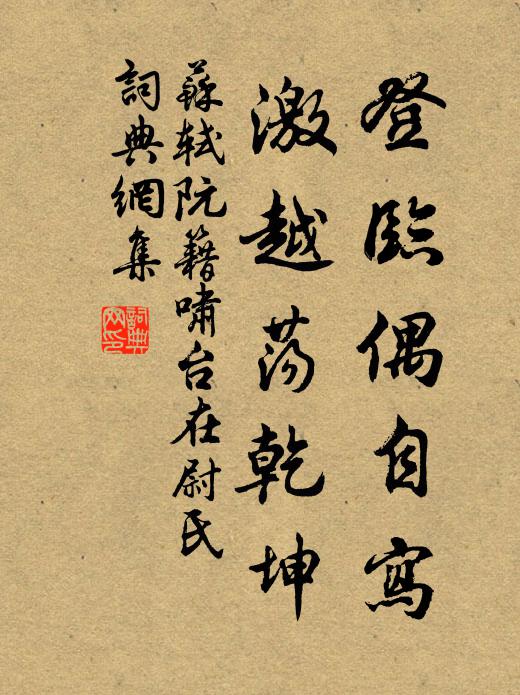 登臨偶自寫
激越蕩乾坤
蘇軾阮籍嘯台在尉氏
詞典網集
詞典网印